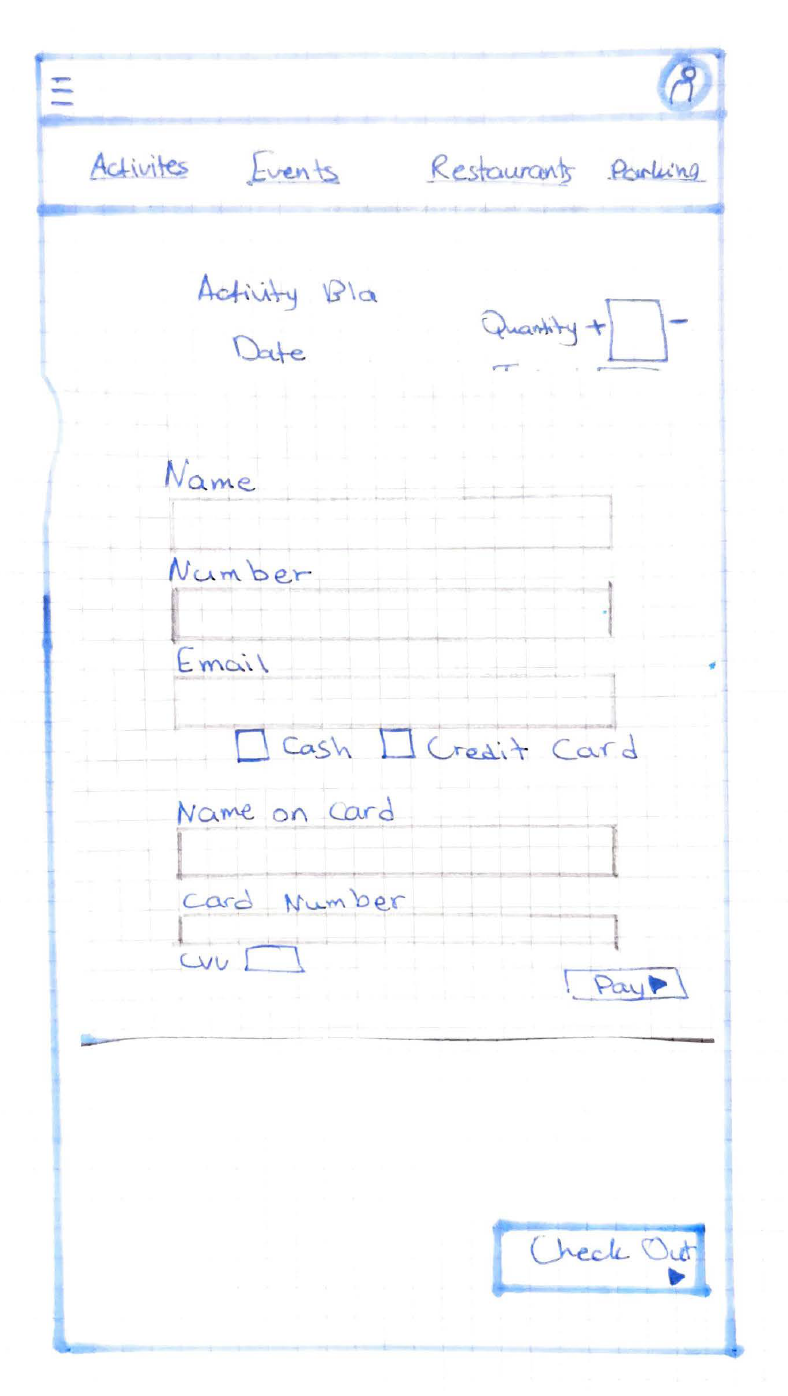 Activites Events Restaurants Parking
Activity Bla
Date
Quantity + -
Name
Number
Email
Cash Credit Card
Name on Card
Card Number
CVV
Pay
Check Out